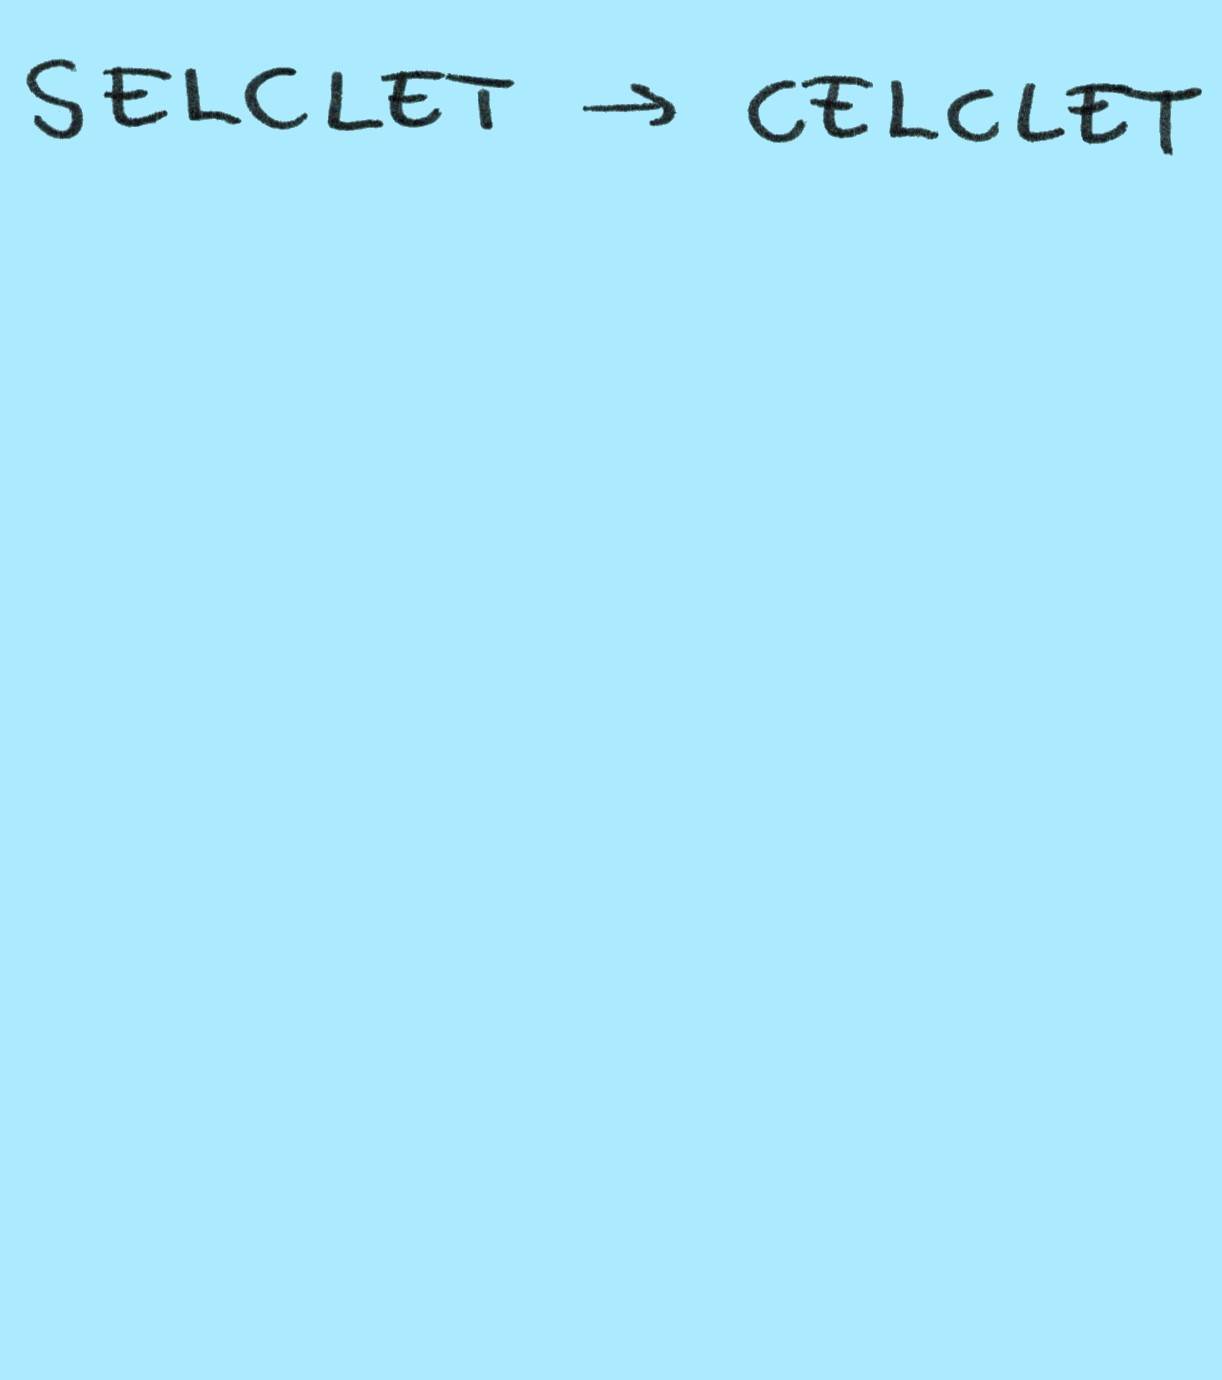 SELCLET → CELCLET